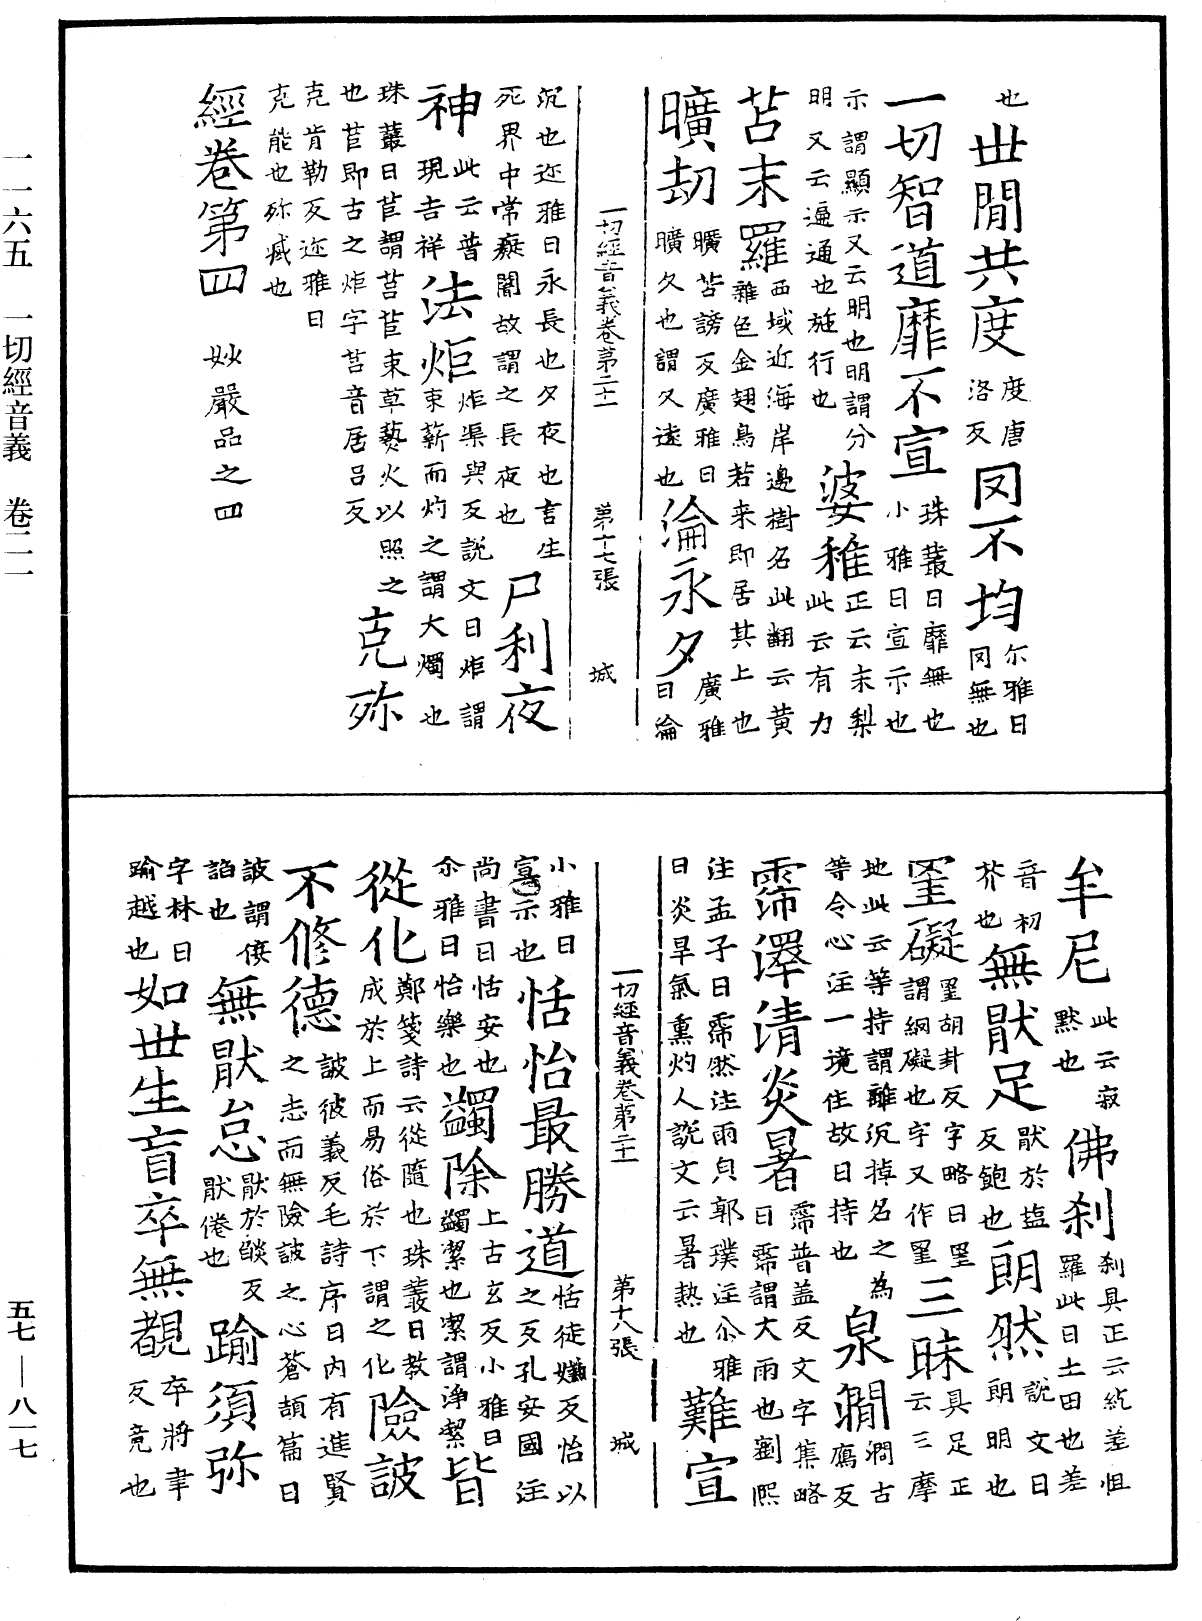 也世閒共度度唐洛反罔不均尒雅曰罔無也
一切智道靡不宣珠叢曰靡無也小雅曰宣示也
示謂顯示又云明也明謂分明又云遍通也旋行也婆稚正云末梨此云有力
苫末羅西域近海岸邊樹名此翻云黃雜色金翅鳥若来即居其上也
曠劫曠苦謗反廣雅曰曠久也謂久遠也淪永夕廣雅曰淪
一切經音義卷第二十一 第十七張 城
沉也迩雅曰永長也夕夜也言生死界中常癡闇故謂之長夜也尸利夜
神此云普現吉祥法炬炬渠與反說文曰炬謂束薪而灼之謂大燭也
珠叢曰苣謂苣束草爇火以照之也苣即古之炬字莒音居呂反克殄
克肯勒反迩雅曰克能也殄滅也
經卷第四 妙嚴品之四
牟尼此云寂默也佛刹刹具正云紇差怛羅此曰土田也差
音初芥也無猒足猒於塩反飽也朗然說文曰朗明也
罣礙罣胡卦反字略曰罣謂網礙也字又作罣三昧具足正云三摩
地此云等持謂離沉掉名之為等令心注一境住故曰持也泉澗澗古鴈反
霈澤清炎暑霈普盖反文字集略曰霈謂大雨也劉熙
注孟子曰霈然注雨皃郭璞注尒雅曰炎旱氣熏灼人說文云暑熱也難宣
一切經音義卷第二十一 第十八張 城
小雅曰宣示也恬怡最勝道恬徒嫌反怡以之反孔安國注
尚書曰恬安也尒雅曰怡樂也蠲除上古玄反小雅曰蠲潔也潔謂淨潔皆
從化鄭箋詩云從隨也珠叢曰教成於上而易俗於下謂之化險詖
不修德詖彼義反毛詩序曰內有進賢之志而無險詖之心蒼頡篇曰
詖謂佞諂也無猒怠猒於豔反猒倦也踰須弥
字林曰踰越也如世生盲卒無覩卒將聿反竟也
一一六五 一切經音義 卷二一
五七—八一七